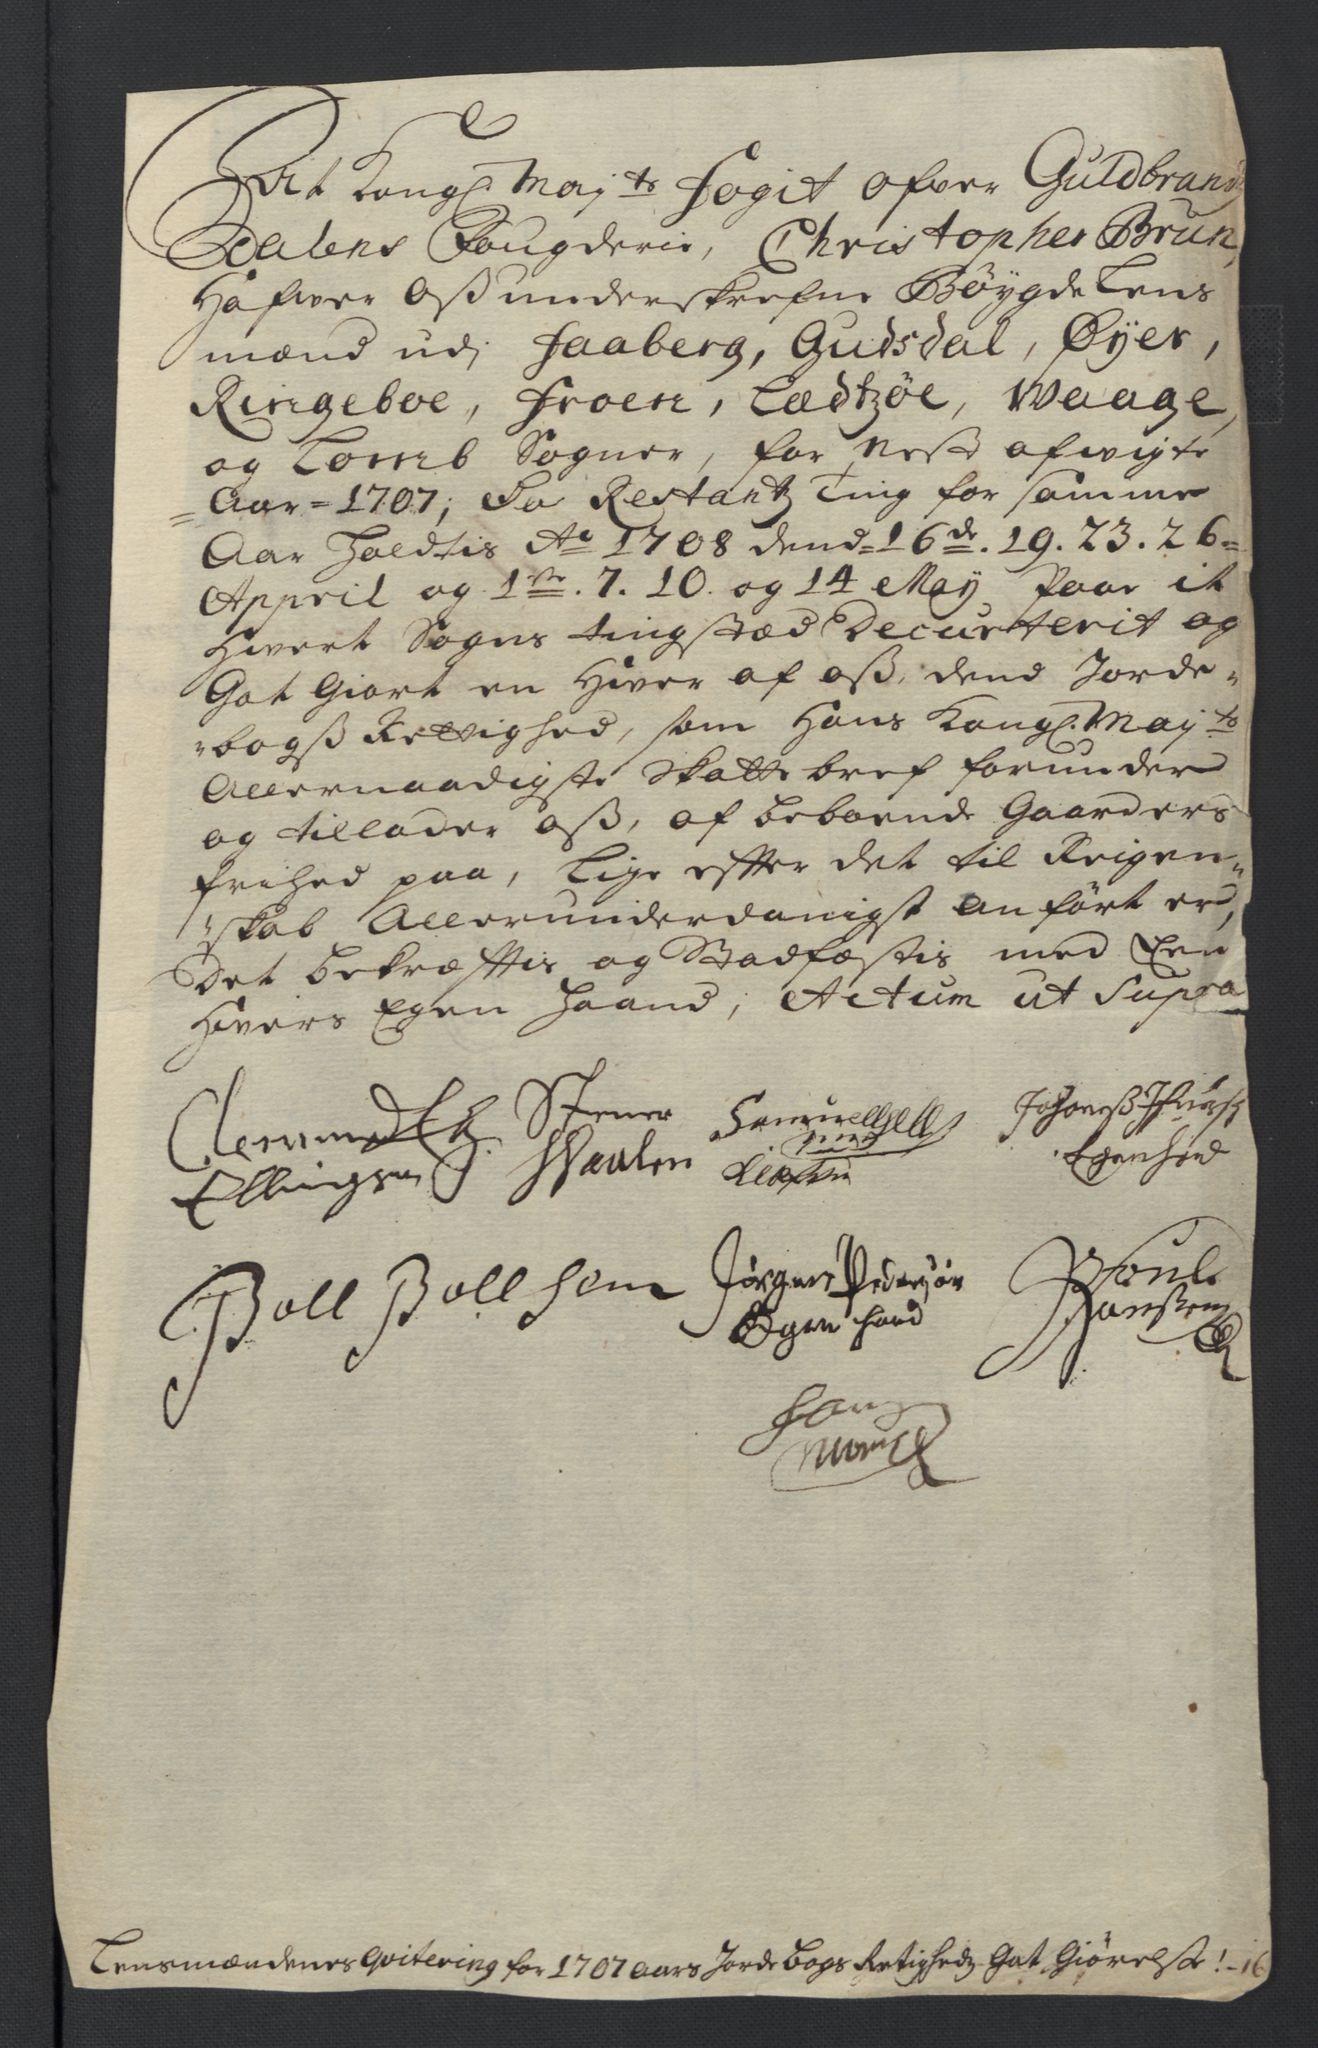 At Kongl. Mayts fogit ofver Guldbrands
Dalens Fougderie, Christopher Brun,
Hafver Oss underskrefne Böygde Lens
mænd udj faaberg, Gudsdal, Øyer,
Ringeboe, froen, Lædtzøe, Waage,
og Lomb Sogner, for nest afvigte
Aar = 1707; Da Restantz Ting for samme
Aar holdtis Ao 1708 dend = 16de. 19. 23. 26 =
Appril og 1ste. 7. 10. og 14 May paa it
Hvert Sogns tingstæd Decurterit og
Got Giort en Hver af oss, dend Jorde-
bogs Rettighed, som Hans Kongl. Mayts
Allernaadigste Skatte bref forunder
og tillader oss, af beboende Gaarders
frihed paa, Lige efter det til Reigen-
skab Allerunderdanigst anført er,
Det bekræfftis og Stadfæstis med Een
Hvers Egen Haand, Actum ut Supra
Clemmed
Ellingsen
Stener
Hvaalen
Johaness
Egenhend
Boll Bollsen
Jørgen Pedersøn
Egen haand
Poul
Hanssen
Hans
Lensmændenes Qvitering for 1707 aars Jorde Bogs Retighedz Got Giørelse! - 16